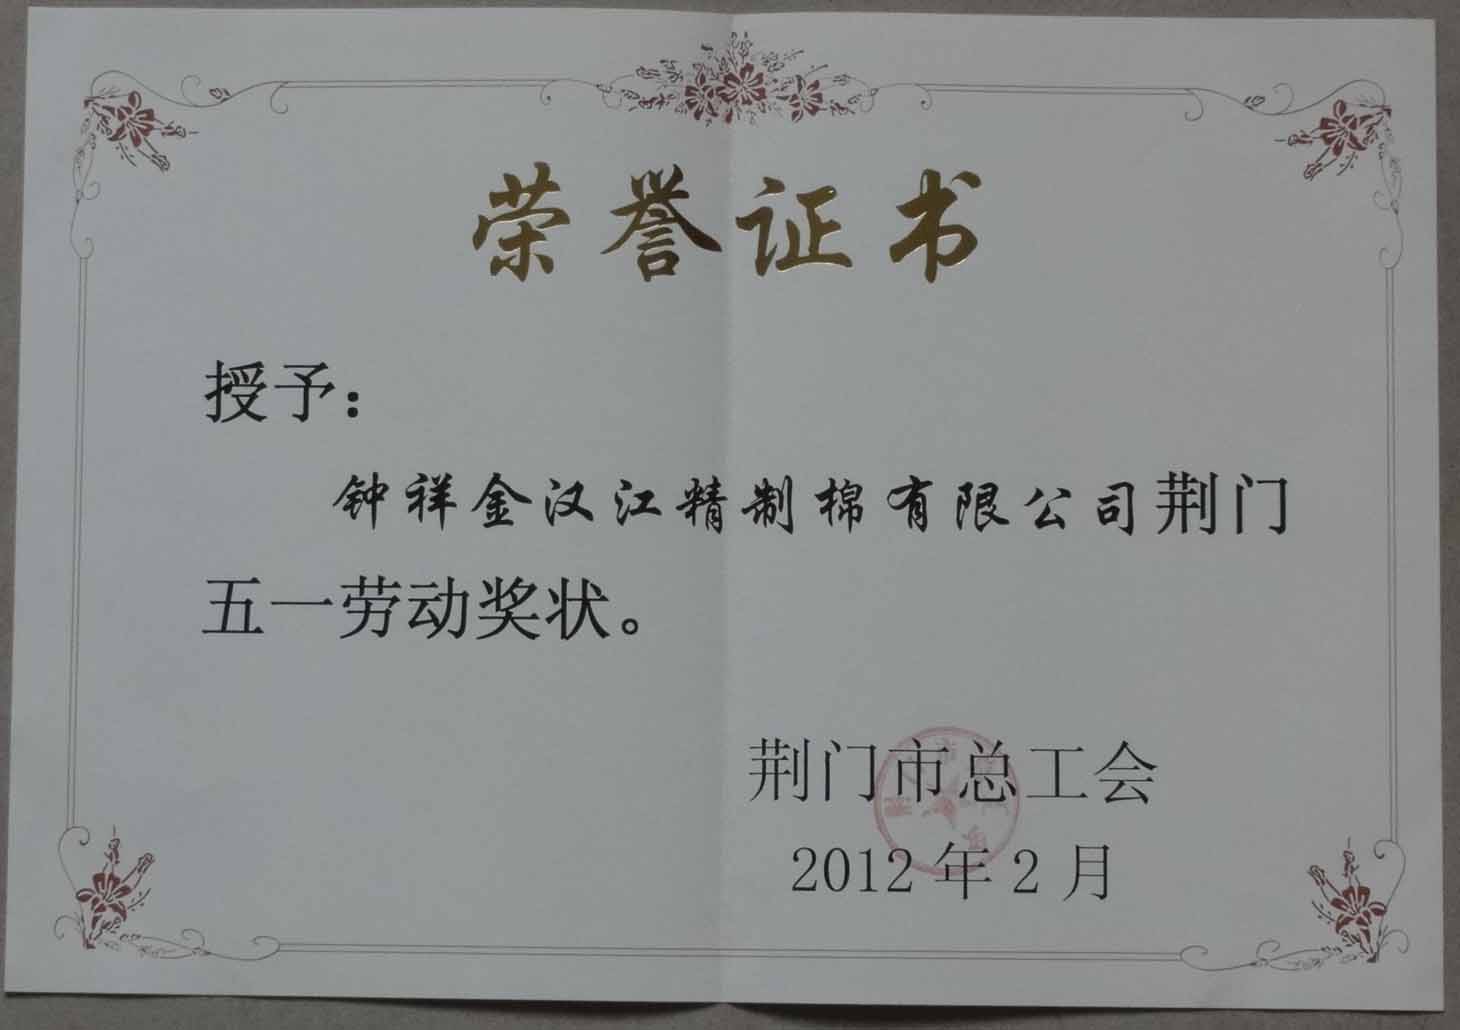 荣誉证书
授予：
钟祥金汉江精制棉有限公司荆门
五一劳动奖状。
荆门市总工会
2012年2月